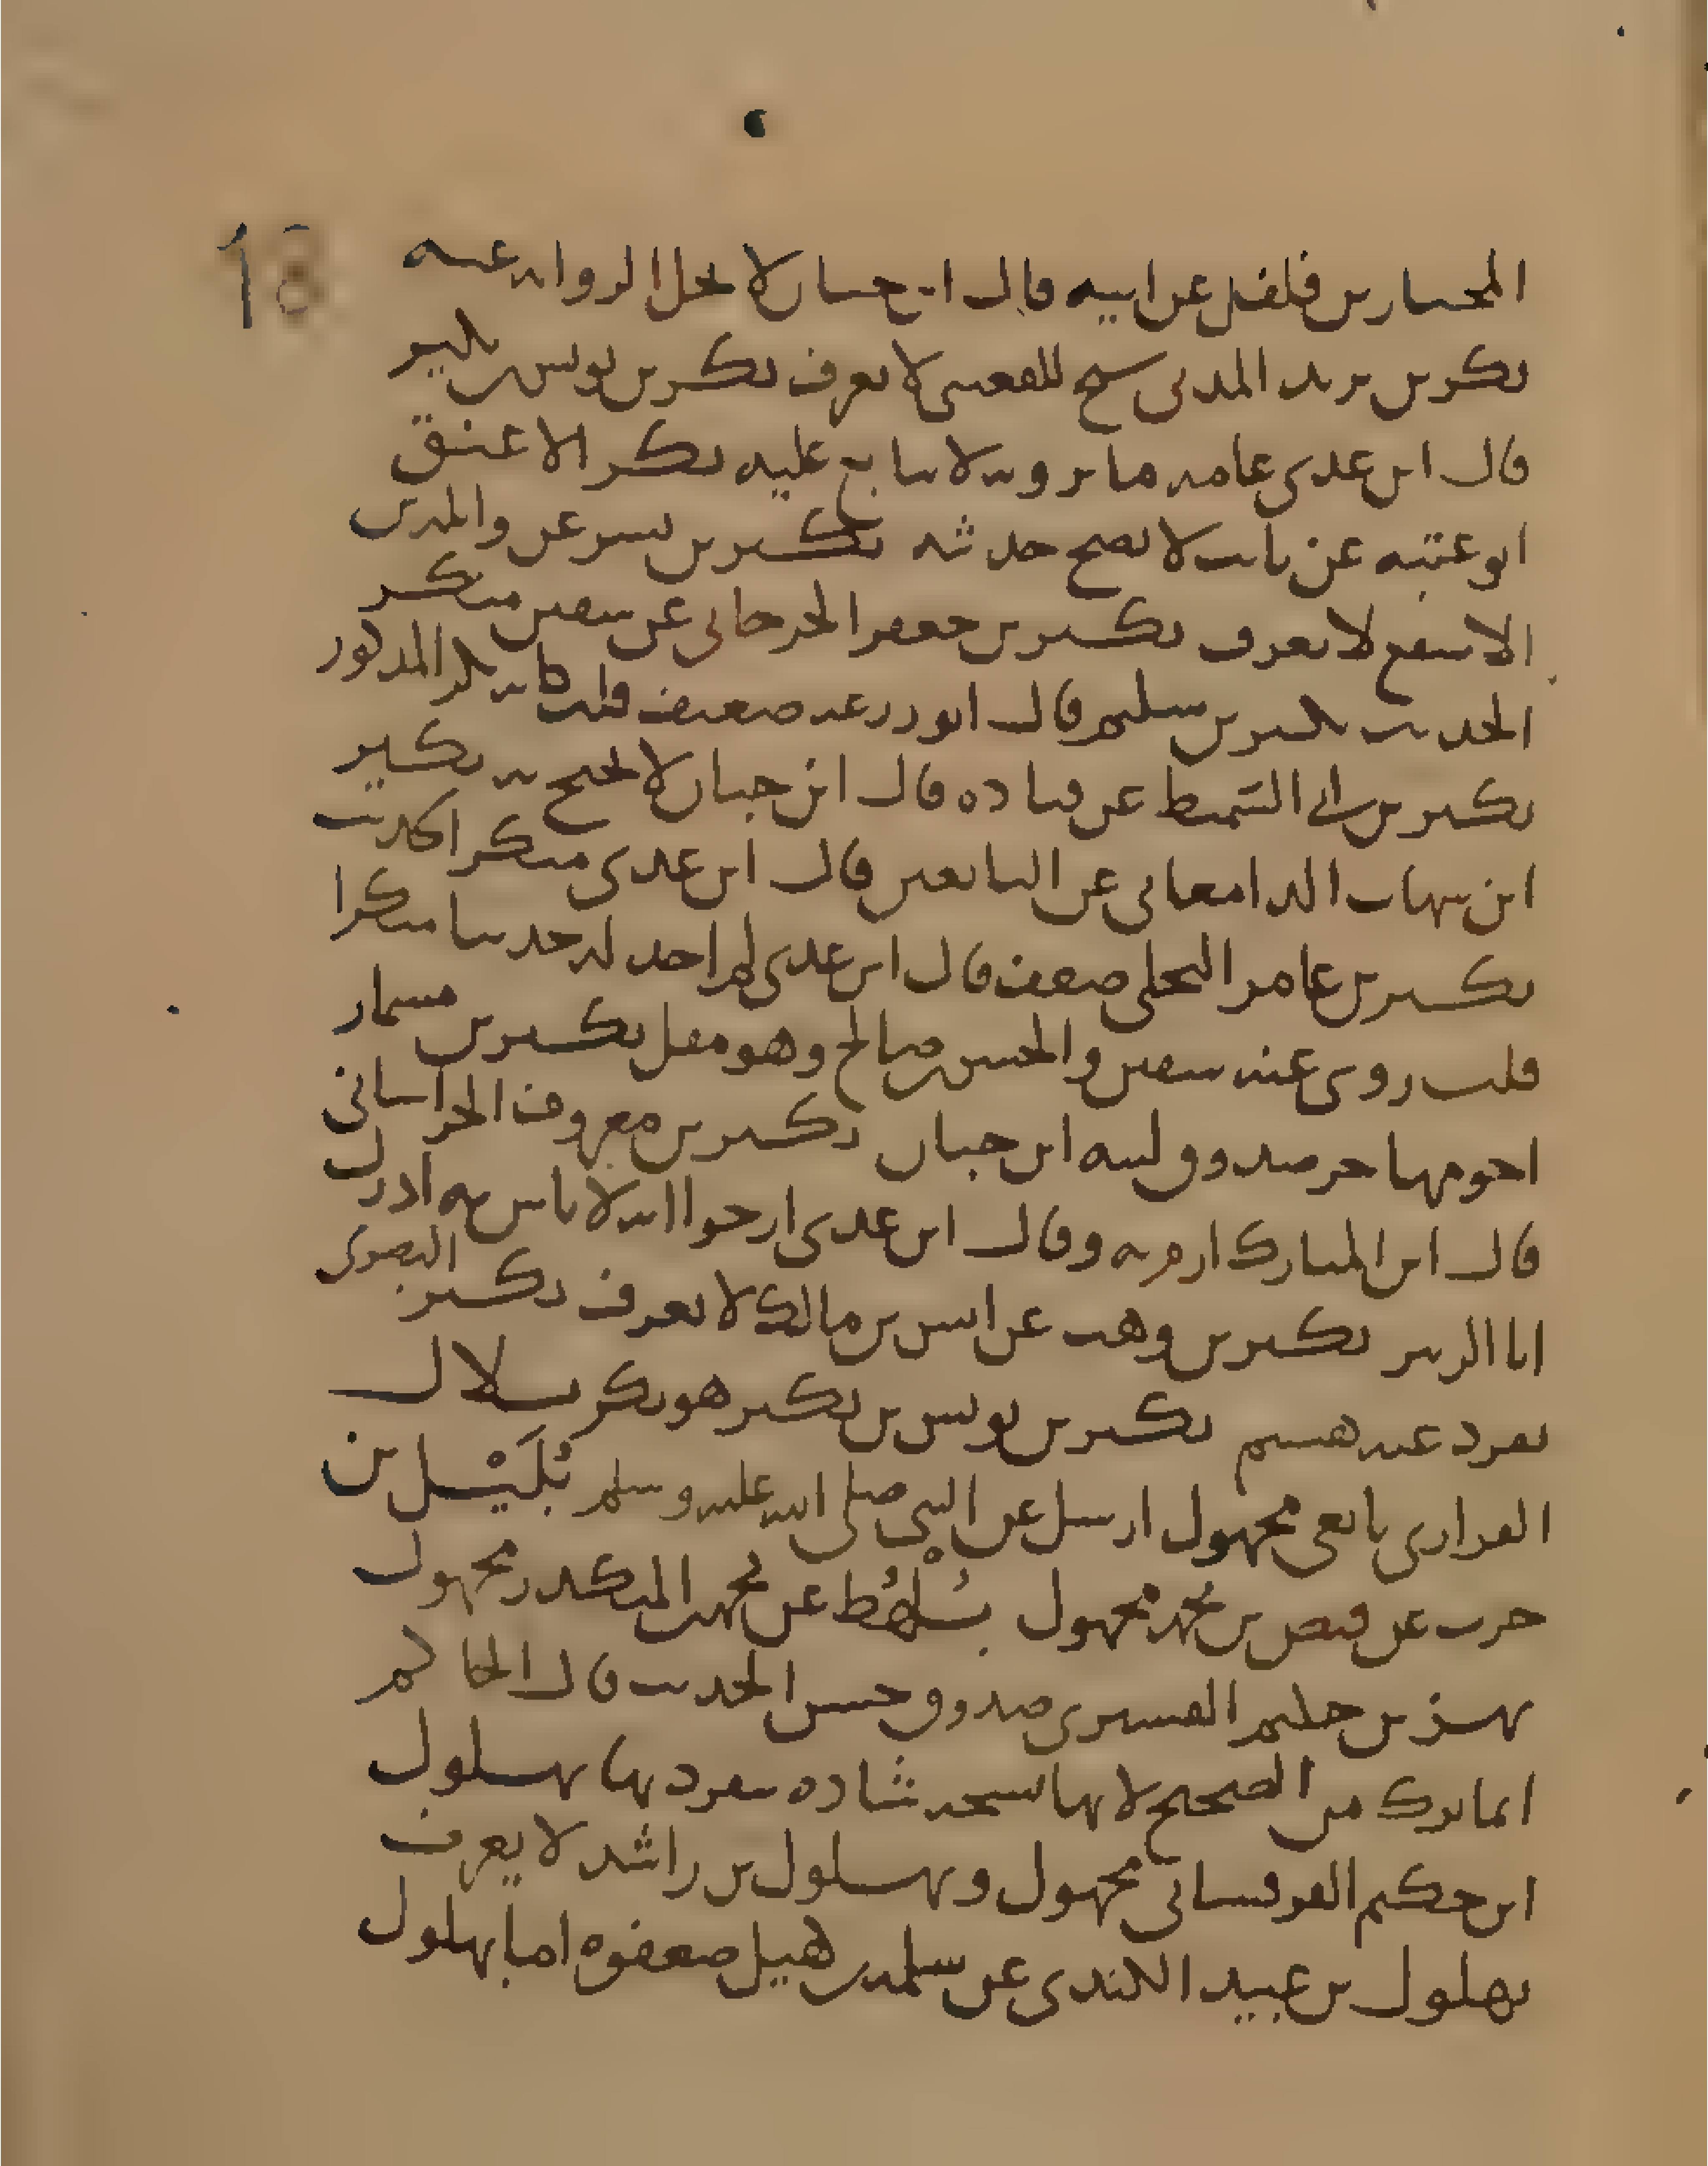 18
المختار بن فلفل عن ابيه قال ابن حبان لا تحل الرواية عنه
بكر بن يزيد المدني شيخ للقعنبي لا يعرف بكر بن يونس بن بكير
قال ابن عدي عامة ما يرويه لا يتابع عليه بكر الاعنق
ابو عتبه عن ثابت لا يصح حديثه بكير بن بسر عن واثلة بن
الاسقع لا يعرف بكير بن جعفر الجرجاني عن سفين منكر
الحديث بكير بن سليم قال ابو زرعه ضعيف قلت كانه بكر المذكور
بكير بن ابي السميط عن قتاده قال ابن حبان لا يحتج به بكير
ابن شهاب الدامغاني عن التابعين قال ابن عدي منكر الحديث
بكير بن عامر البجلي ضعف قال ابن عدي لم اجد له حديثا منكرا
قلت روى عنه سفين والحسن بن صالح وهو مقل بكير بن مسمار
اخو مهاجر صدوق لينه ابن حبان بكير بن معروف الخراساني
قال ابن المبارك ارم به وقال ابن عدي ارجوا انه لا باس به ادرك
ابا الزبير بكير بن وهب عن انس بن مالك لا يعرف بكير البصري
تفرد عنه هشيم بكير بن يونس بن بكير هو بكر بلال
الفزاري تابعي مجهول ارسل عن النبي صلى الله عليه وسلم بُلَيْل بن
حرب عن قيص بن محمد مجهول بُسْلْهُط عن محمد بن المنكدر مجهول
بهز بن حكيم القشيري صدوق حسن الحديث قال الحاكم
انما ترك من الصحيح لانها نسخه شاذه ينفرد بها بهلول
ابن حكيم القرقساني مجهول وبهلول بن راشد لا يعرف
بهلول بن عبيد الكندي عن سلمة بن كهيل ضعفوه اما بهلول